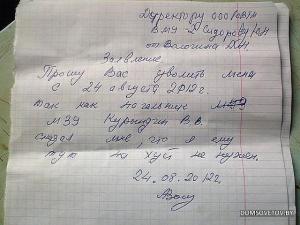 Директору ООО РСВТМ
ВМУ-2 Сидорову
от Волошина
Заявление
Прошу Вас уволить меня
с 24 августа 2012г.
так как начальник
МЗУ В.В.
сказал мне, что я ему
тут на хуй не нужен.
24.08.2012г.
DOMSOVETOV.BY